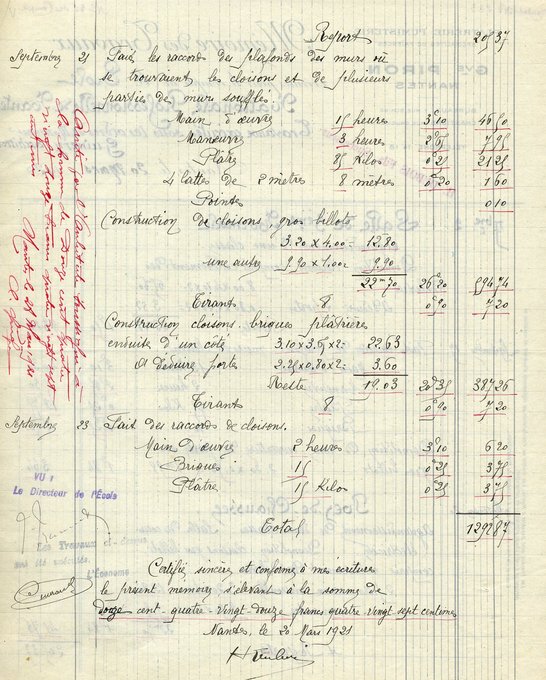 Report 209 37
Septembre 21 Fait les raccords des plafonds des murs où
se trouvaient les cloisons et de plusieurs
parties de murs soufflés
Main d'œuvre 15 heures 3 10 46 50
Manœuvre 3 heures 2 65 7 95
Plâtre 85 Kilos 0 25 21 25
4 lattes de 2 mètres 8 mètres 0 20 1 60
Pointes 0 10
Construction de cloisons gros billots
3.20 x 4.00 = 12.80
une autre 9.90 x 1.00 = 9.90
22 m 70 26 20 594 74
Tirants 8 0 90 7 20
Construction cloisons briques plâtrières
enduite d'un côté 3.10 x 3.65 x 2 = 22.63
à déduire portes 2.25 x 0.80 x 2 = 3.60
Reste 19.03 20 35 387 26
Tirants 8 0 90 7 20
Septembre 23 Fait des raccords de cloisons.
Main d'œuvre 2 heures 3 10 6 20
Briques 15 0 25 3 75
Plâtre 15 Kilos 0 25 3 75
VU :
Le Directeur de l'École
Total 1292 87
Les Travaux ci-dessus
ont été exécutés.
L'Économe
Certifié sincère et conforme à mes écritures
le présent mémoire s'élevant à la somme de
douze-cent-quatre-vingt douze francs quatre-vingt sept centimes
Nantes, le 20 Mars 1921